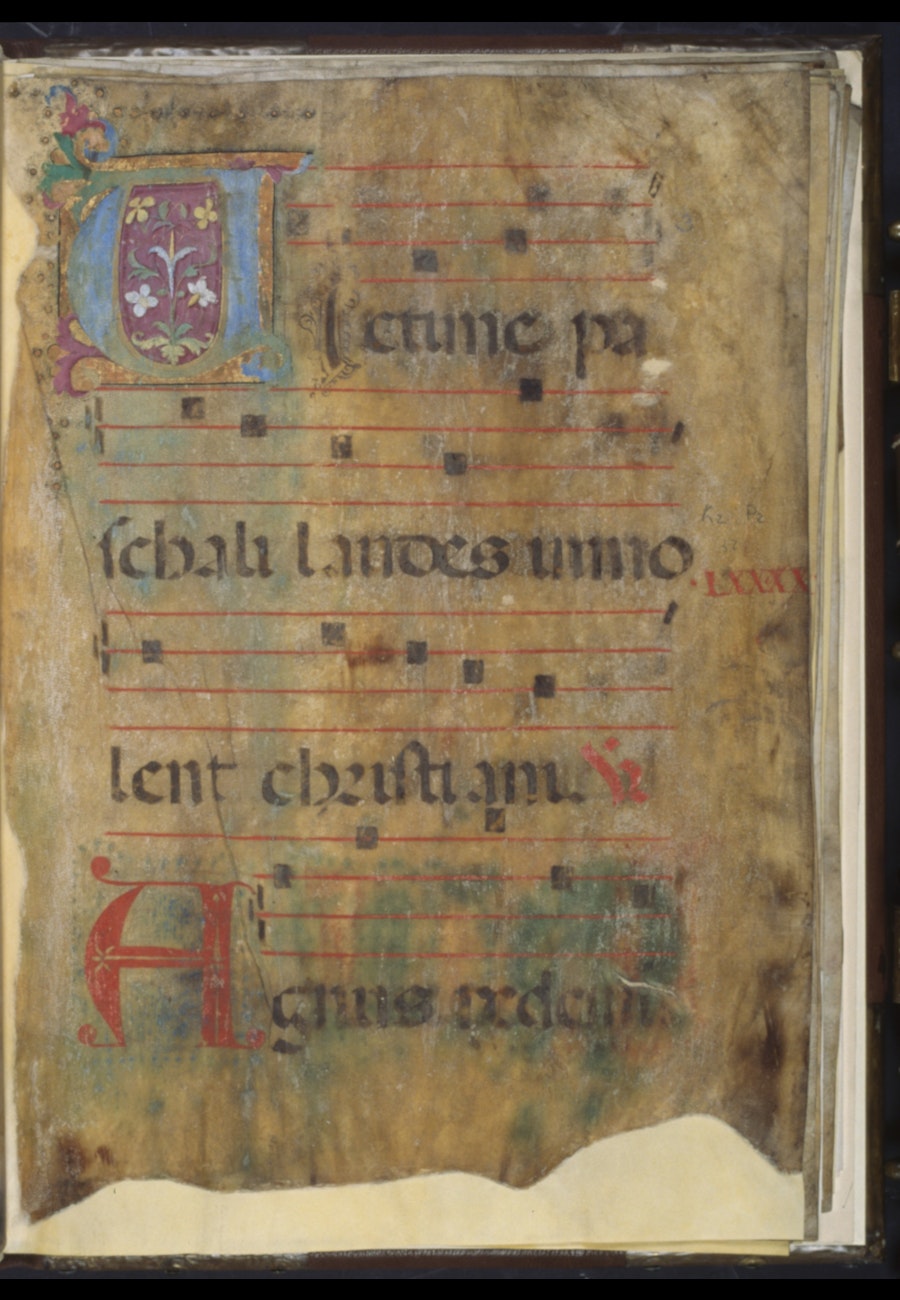 VIctime pa
ſchali laudes immo
lent chriſtiani. ℣
Agnus redemit